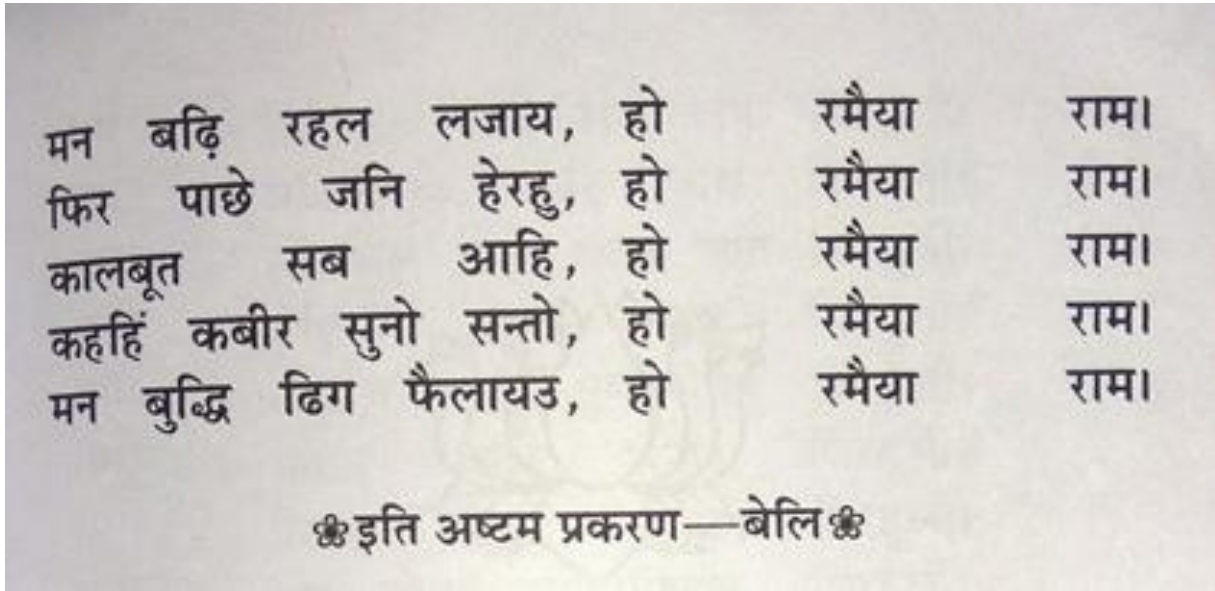 मन बढ़ि रहल लजाय, हो रमैया राम।
फिर पाछे जनि हेरहु, हो रमैया राम।
कालबूत सब आहि, हो रमैया राम।
कहहिं कबीर सुनो सन्तो, हो रमैया राम।
मन बुद्धि ढिग फैलायउ, हो रमैया राम।
❀इति अष्टम प्रकरण—बेलि❀